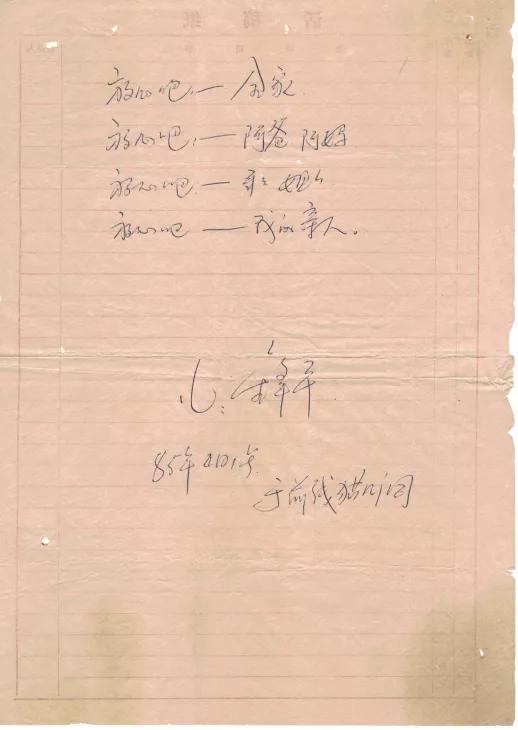 放心吧,— 全家.
放心吧,— 阿爸 阿妈
放心吧,— 哥哥 姐姐
放心吧 — 我的亲人。
85年4月1号.
于前线猫耳洞